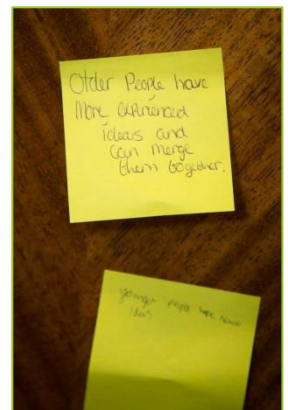 Older People have
More experienced
ideas and
can merge
them together.
younger people have newer
ideas